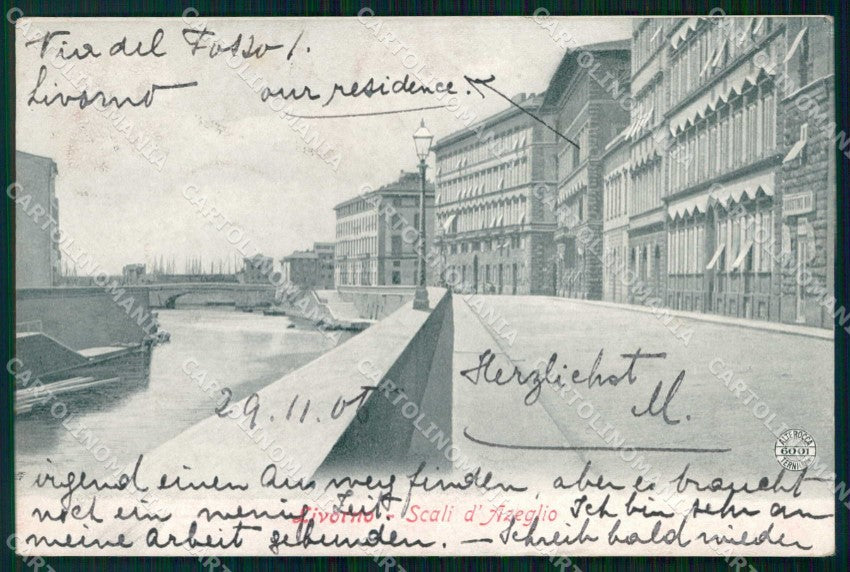 Via del Fosso 1.
Livorno
our residence.
29.11.05
Herzlichst
M.
irgend einen Ausweg finden, aber es braucht
noch ein wenig Zeit. Ich bin sehr an
Livorno - Scali d'Azeglio
meine Arbeit gebunden. – Schreib bald wieder
ALTEROCCA
6001
TERNI
CARTOLINOMANIA